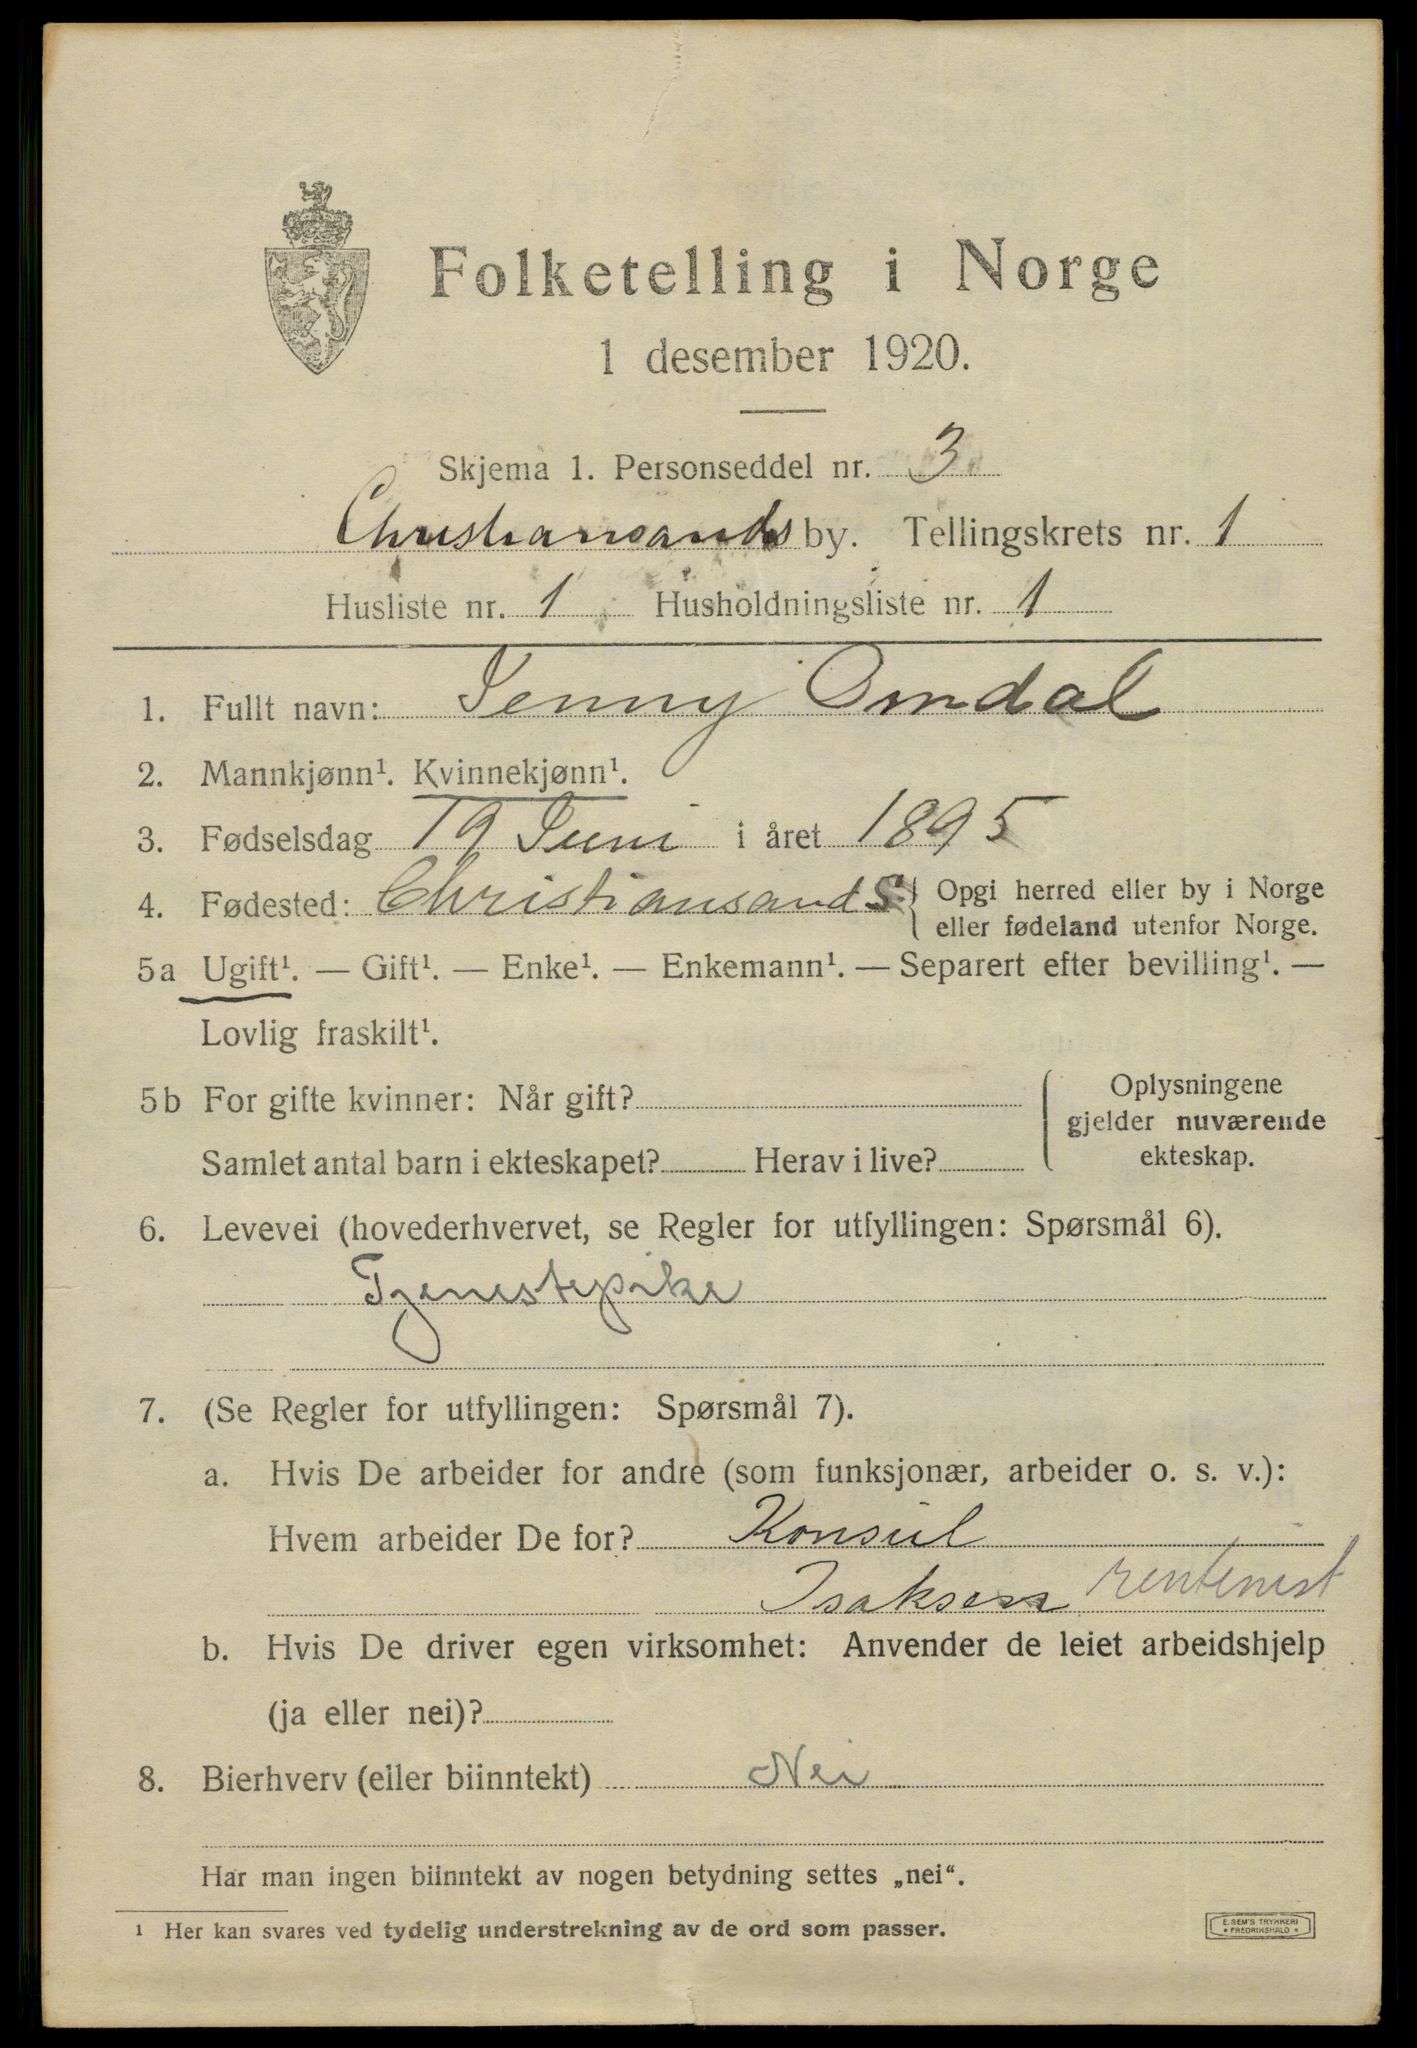 Folketelling i Norge
1 desember 1920.
Skjema 1. Personseddel nr. 3
Christiansands by. Tellingskrets nr. 1
Husliste nr. 1 Husholdningsliste nr. 1
1. Fullt navn: Jenny Omdal
2. Mannkjønn¹. Kvinnekjønn¹.
3. Fødselsdag 19 Juni i året 1895
4. Fødested: Christiansand S. { Opgi herred eller by i Norge
eller fødeland utenfor Norge.
5a Ugift¹. — Gift¹. — Enke¹. — Enkemann¹. — Separert efter bevilling¹. —
Lovlig fraskilt¹.
5b For gifte kvinner: Når gift?
Samlet antal barn i ekteskapet? Herav i live?
Oplysningene
gjelder nuværende
ekteskap.
6. Levevei (hovederhvervet, se Regler for utfyllingen: Spørsmål 6).
Tjenestepike
7. (Se Regler for utfyllingen: Spørsmål 7).
a. Hvis De arbeider for andre (som funksjonær, arbeider o. s. v.):
Hvem arbeider De for? Konsul
Isaksen rentenist
b. Hvis De driver egen virksomhet: Anvender de leiet arbeidshjelp
(ja eller nei)?
8. Bierhverv (eller biinntekt) Nei
Har man ingen biinntekt av nogen betydning settes „nei“.
¹ Her kan svares ved tydelig understrekning av de ord som passer.
E. SEM'S TRYKKERI
* FREDRIKSHALD *